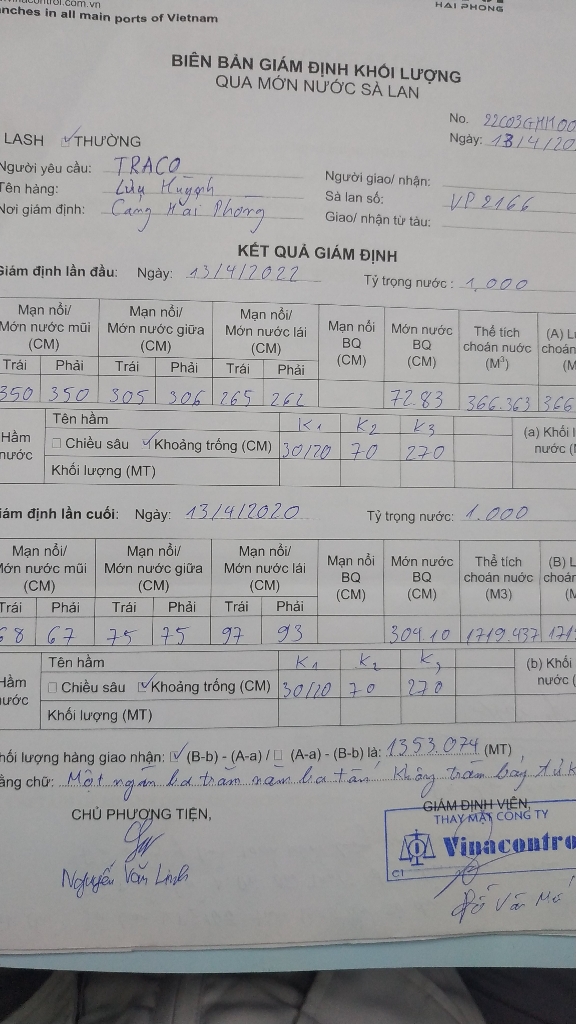 nacontrol.com.vn
nches in all main ports of Vietnam
HAI PHONG
BIÊN BẢN GIÁM ĐỊNH KHỐI LƯỢNG
QUA MỚN NƯỚC SÀ LAN
No. 22C03GHH00
LASH ✓THƯỜNG
Ngày: 13/4/20
Người yêu cầu: TRACO
Người giao/ nhận:
Tên hàng: Lúa Huỳnh
Sà lan số: VP 2166
Nơi giám định: Cang Hai Phong
Giao/ nhận từ tàu:
KẾT QUẢ GIÁM ĐỊNH
Giám định lần đầu: Ngày: 13/4/2022 Tỷ trọng nước : 1,000
Mạn nổi/ Mạn nổi/ Mạn nổi/ Mạn nổi Mớn nước Thể tích (A) L
Mớn nước mũi Mớn nước giữa Mớn nước lái BQ BQ choán nước choán
(CM) (CM) (CM) (CM) (CM) (M³) (M
Trái Phải Trái Phải Trái Phải
350 350 305 306 265 262 72.83 366.363 366
Tên hầm K1 K2 K3
Hầm nước □ Chiều sâu ✓Khoảng trống (CM) 30/20 70 270 (a) Khối l nước (
Khối lượng (MT)
iám định lần cuối: Ngày: 13/4/2020 Tỷ trọng nước: 1.000
Mạn nổi/ Mạn nổi/ Mạn nổi/ Mạn nổi Mớn nước Thể tích (B) L
Mớn nước mũi Mớn nước giữa Mớn nước lái BQ BQ choán nước choán
(CM) (CM) (CM) (CM) (CM) (M3) (M
Trái Phải Trái Phải Trái Phải
68 67 75 75 97 93 304.10 1719.437 171
Tên hầm K1 K2 K3
Hầm nước □ Chiều sâu ✓Khoảng trống (CM) 30/20 70 270 (b) Khối nước (
Khối lượng (MT)
hối lượng hàng giao nhận: ✓ (B-b) - (A-a) / □ (A-a) - (B-b) là: 1353.074 (MT)
ằng chữ: Một ngàn ba trăm năm ba tấn, không trăm bảy tư k
CHỦ PHƯƠNG TIỆN,
GIÁM ĐỊNH VIÊN,
THAY MẶT CÔNG TY
Vinacontro
C1
Nguyễn Văn Linh
Đỗ Văn